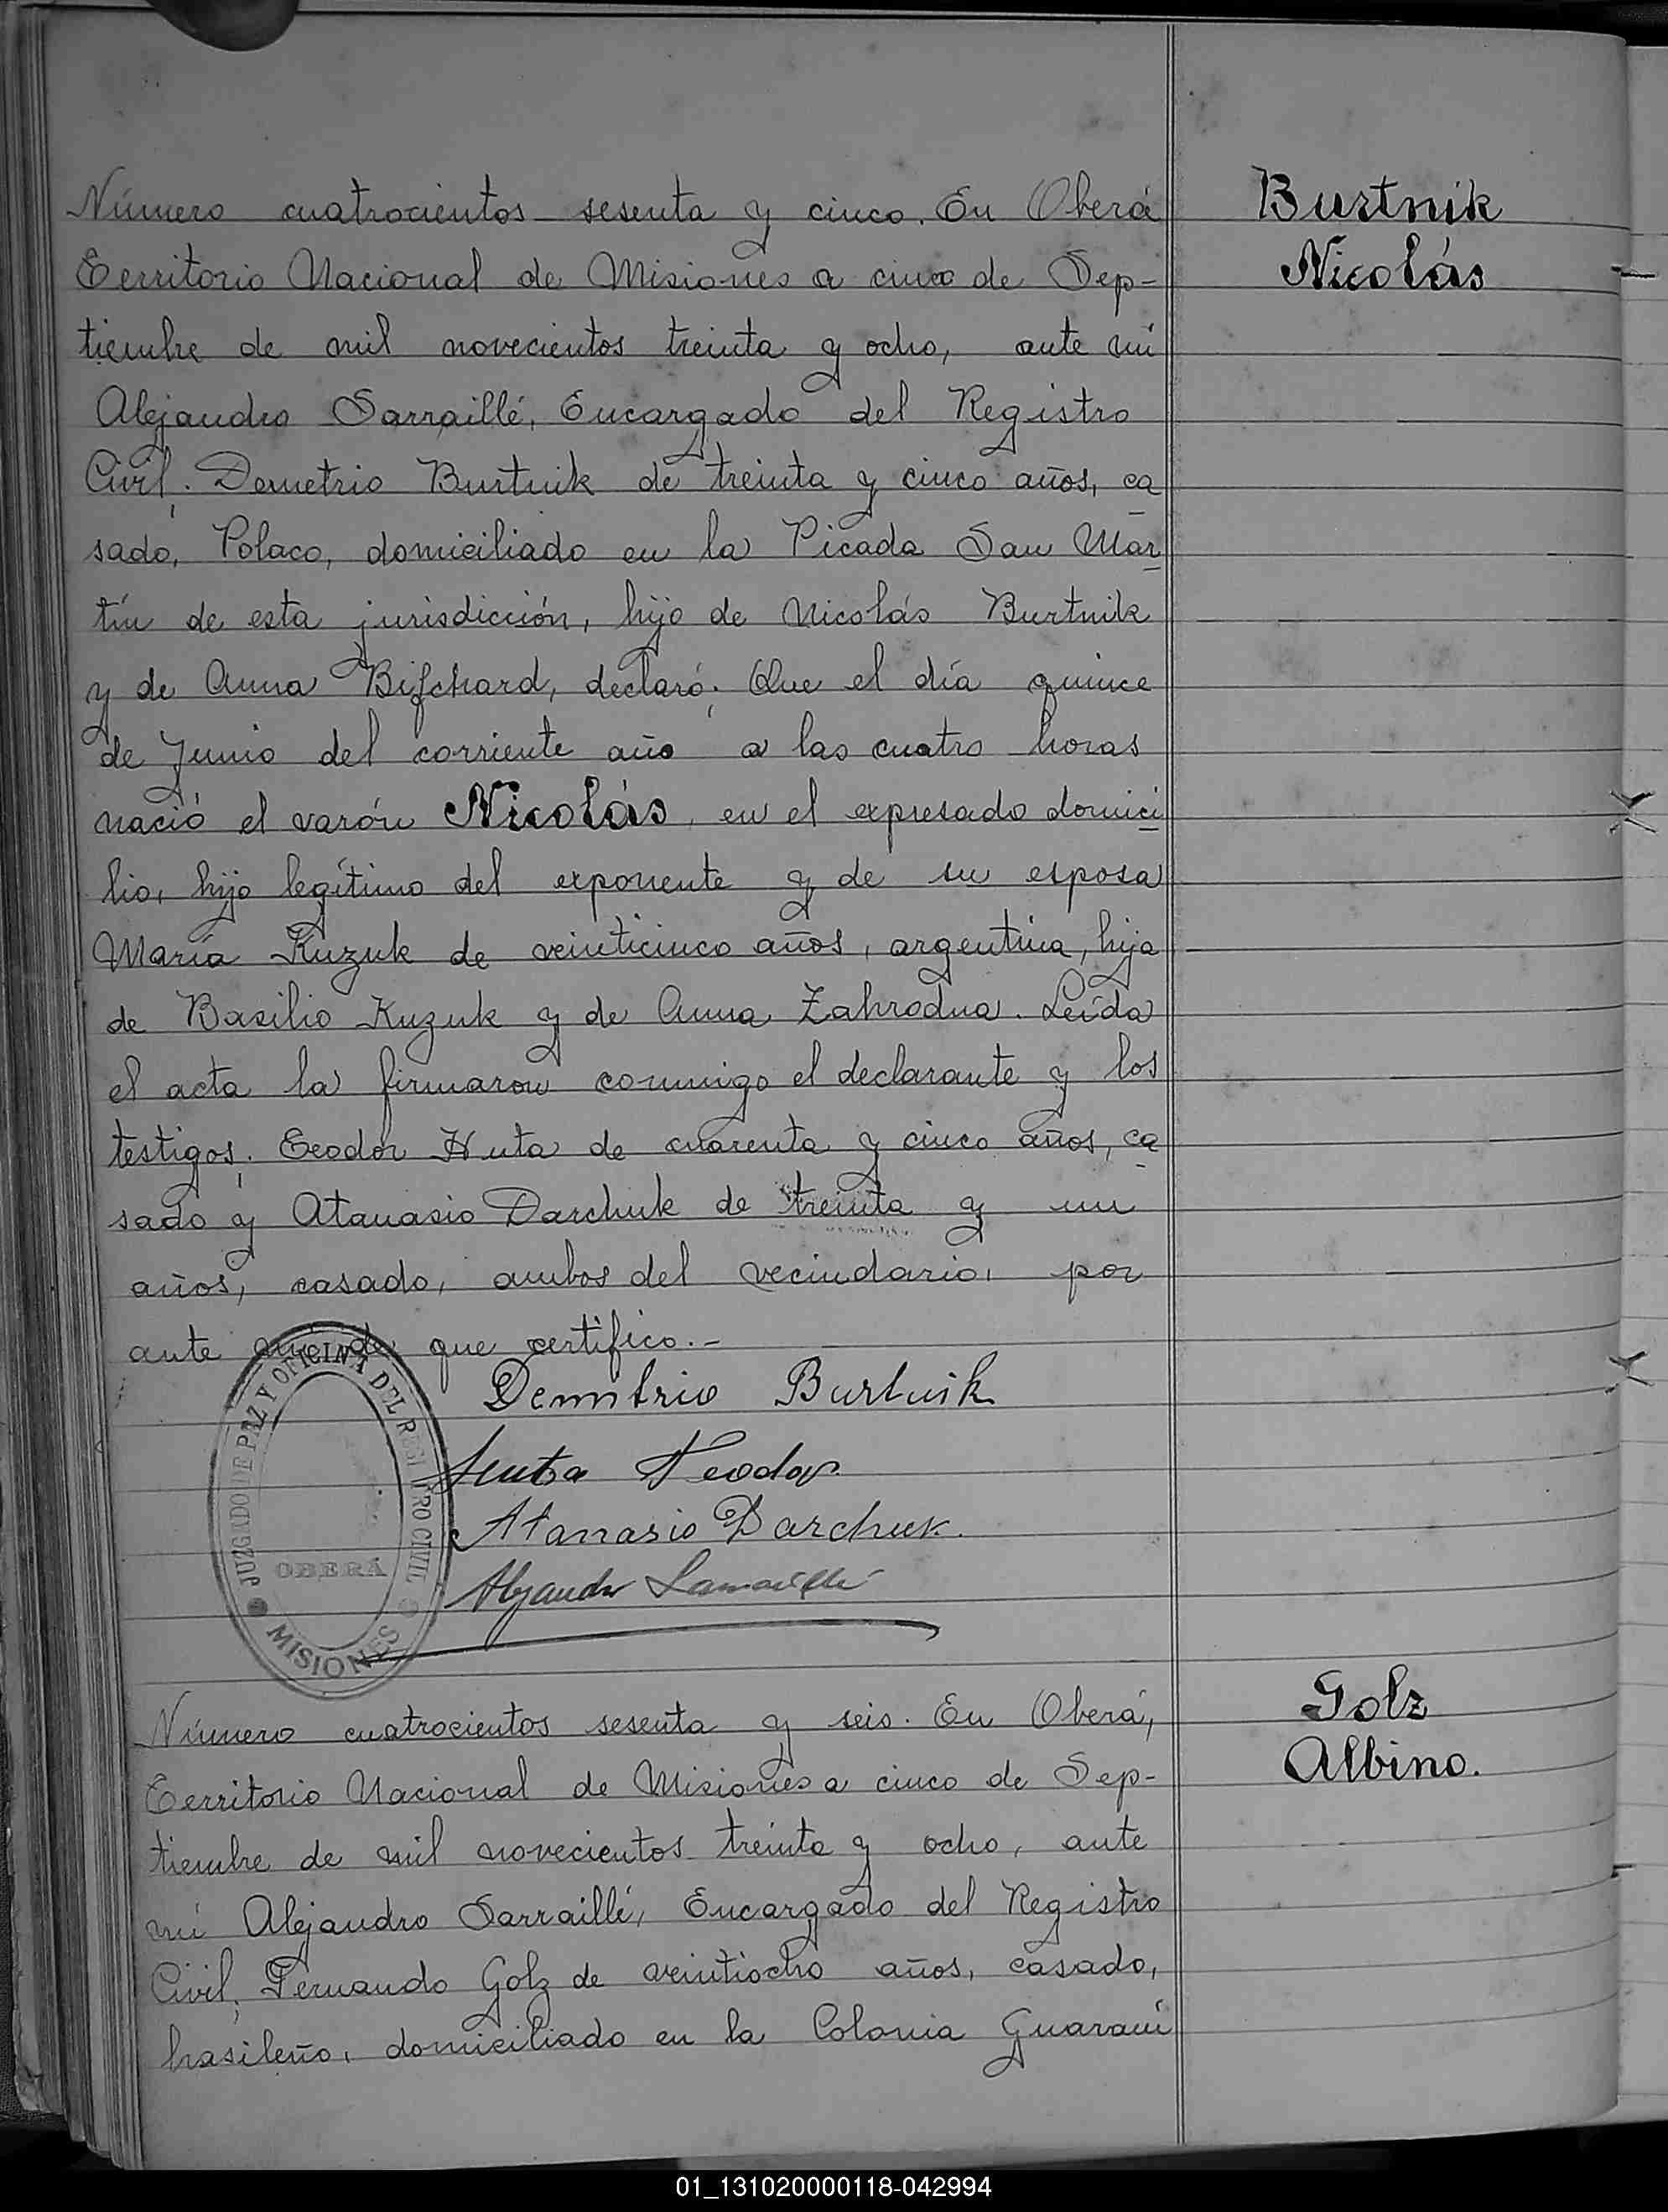 Burtnik
Nicolás
Número cuatrocientos sesenta y cinco. En Oberá
Territorio Nacional de Misiones a cinco de Sep-
tiembre de mil novecientos treinta y ocho, ante mí
Alejandro Sarraillé, Encargado del Registro
Civil. Demetrio Burtnik de treinta y cinco años, ca
sado, Polaco, domiciliado en la Picada San Mar
tín de esta jurisdicción, hijo de Nicolás Burtnik
y de Anna Bifchard, declaró: Que el día quince
de Junio del corriente año a las cuatro horas
nació el varón Nicolás, en el expresado domici
lio, hijo legítimo del exponente y de su esposa
María Kuzuk de veinticinco años, argentina, hija
de Basilio Kuzuk y de Anna Zahrodna. Leída
el acta la firmaron conmigo el declarante y los
testigos: Teodor Huta de cuarenta y cinco años, ca
sado y Atanasio Darchuk de treinta y un
años, casado, ambos del vecindario, por
ante mí de que certifico.-
Demitrio Burtnik
Huta Teodor
Atanasio Darchuk.
Alejandro Sarraillé
JUZGADO DE PAZ Y OFICINA DEL REGISTRO CIVIL
OBERÁ
MISIONES
Golz
Albino.
Número cuatrocientos sesenta y seis. En Oberá,
Territorio Nacional de Misiones a cinco de Sep-
tiembre de mil novecientos treinta y ocho, ante
mí Alejandro Sarraillé, Encargado del Registro
Civil, Fernando Golz de veintiocho años, casado,
brasileño, domiciliado en la Colonia Guaraní
01_131020000118-042994